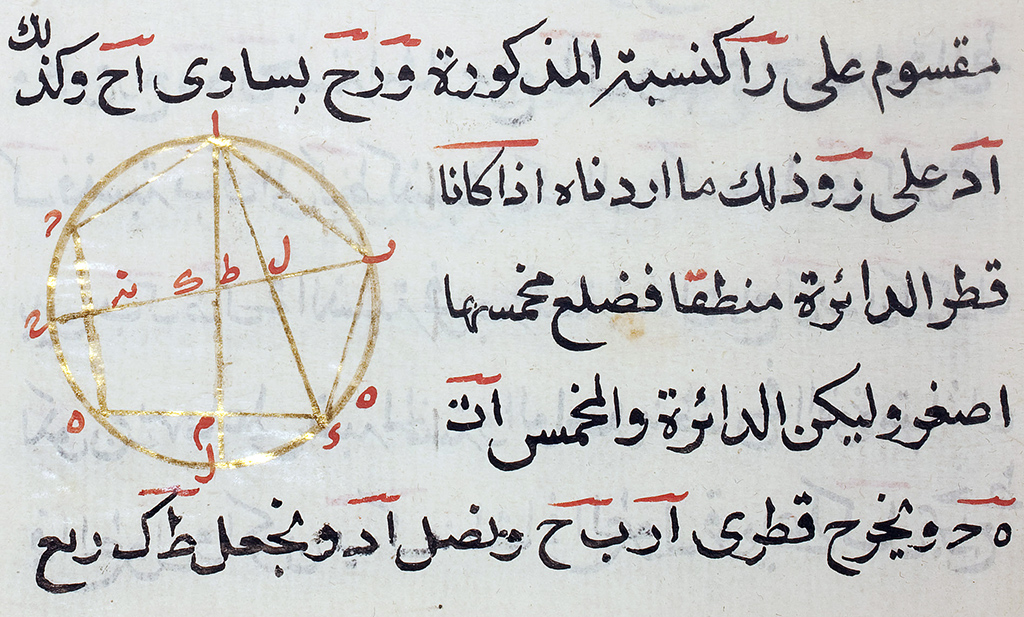 مقسوم على را كنسبة المذكورة و رح يساوى اح وكذلك
اد على ر و ذلك ما اردناه اذا كانا
قطر الدائرة منطقا فضلع مخمسها
اصغر وليكن الدائرة والمخمس ات
ه د ويخرج قطرى ار ب ح ونصل اد ونجعل ط ك ربع
ا
ب
ل
ط
ك
ح
ه
ه
م
ر
ء